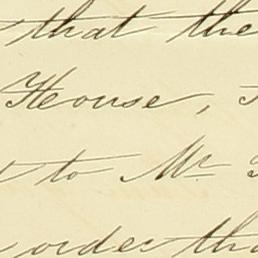 that the
House,
to Mr.
order tha